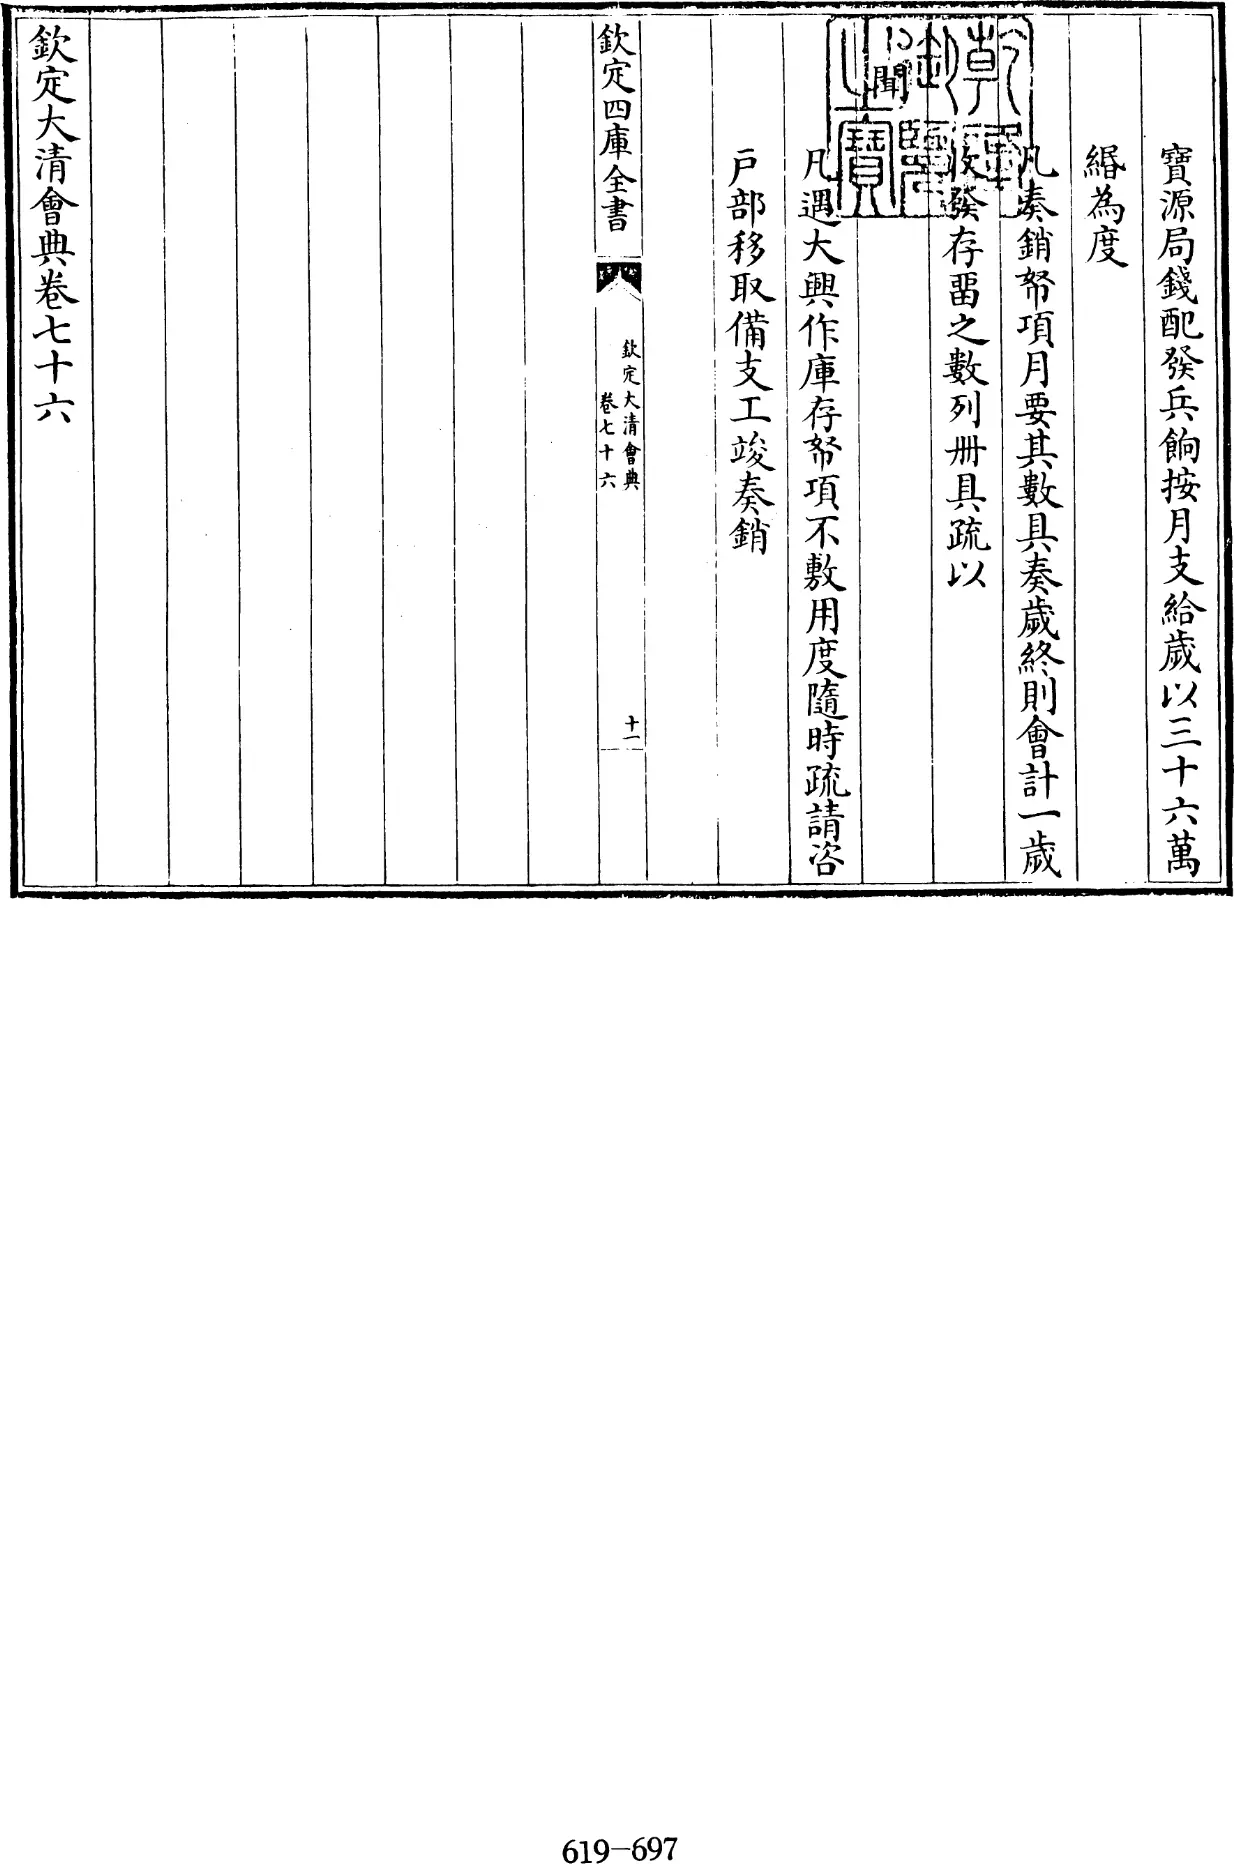 寶源局錢配發兵餉按月支給歲以三十六萬
緡為度
凡奏銷帑項月要其數具奏歲終則會計一歲
收發存畱之數列冊具疏以
聞
凡遇大興作庫存帑項不敷用度隨時疏請咨
戸部移取備支工竣奏銷
欽定四庫全書
欽定大清會典
卷七十六
十一
欽定大清會典卷七十六
乾隆御覽之寶
619-697